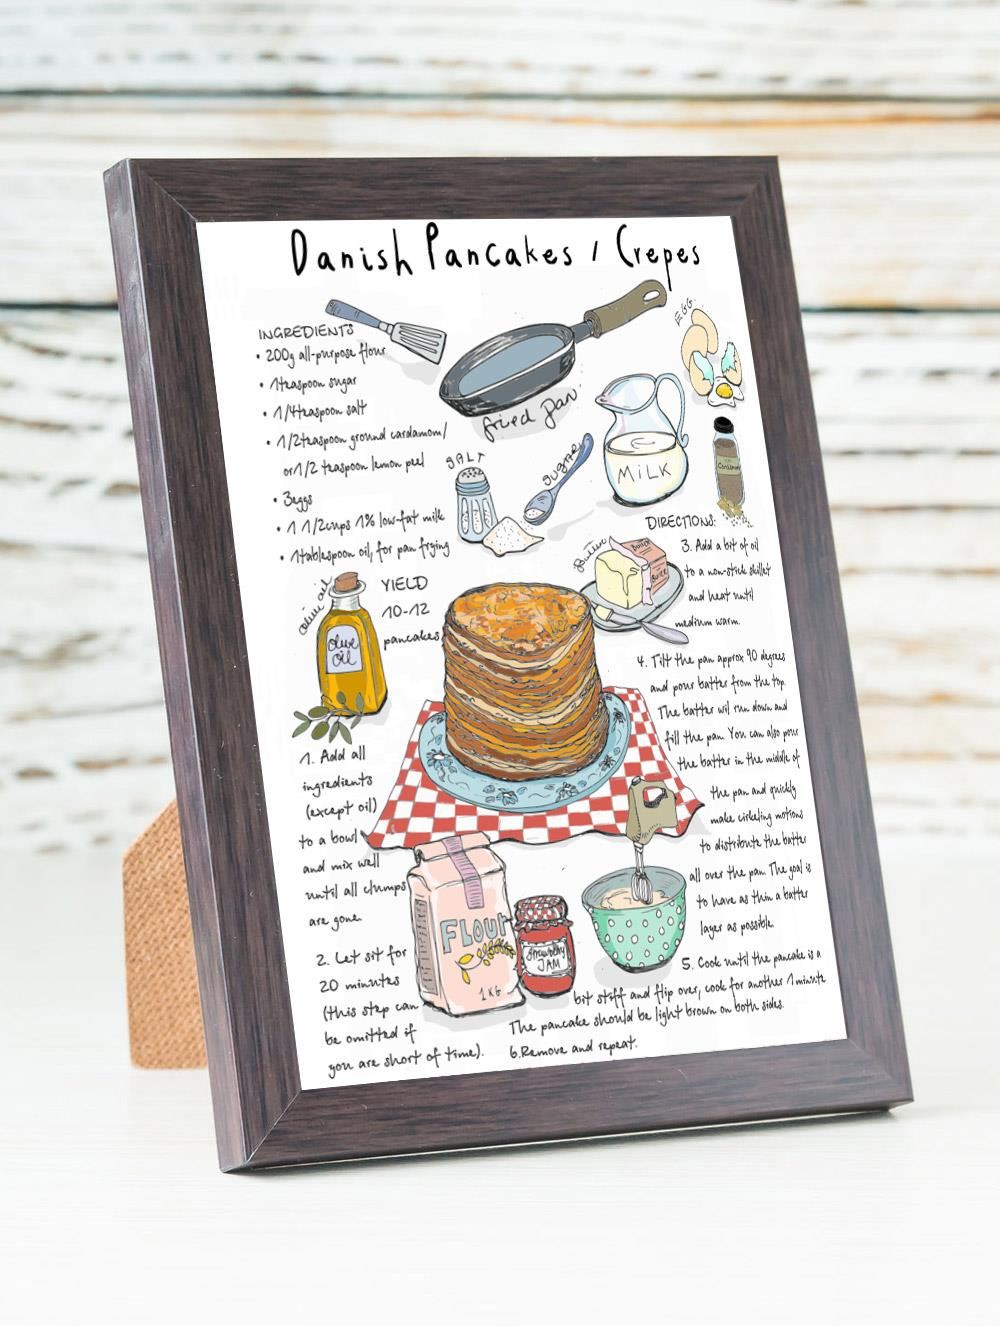 Danish Pancakes / Crepes
INGREDIENTS
• 200g all-purpose flour
• 1teaspoon sugar
• 1/4teaspoon salt
• 1/2teaspoon ground cardamom/
or1/2 teaspoon lemon peel
• 3eggs
• 1 1/2cups 1% low-fat milk
• 1tablespoon oil, for pan frying
EGG
fried pan
SALT
sugar
MiLK
Cardamom
Butter
Butter
olive oil
olive
oil
YIELD
10-12
pancakes
1. Add all
ingredients
(except oil)
to a bowl
and mix well
until all clumps
are gone.
2. Let sit for
20 minutes
(this step can
be omitted if
you are short of time).
FLOUR
1KG
Strawberry
JAM
DIRECTIONS:
3. Add a bit of oil
to a non-stick skillet
and heat until
medium warm.
4. Tilt the pan approx 90 degrees
and pour batter from the top.
The batter wil run down and
fill the pan. You can also pour
the batter in the middle of
the pan and quickly
make cirkeling motions
to distribute the batter
all over the pan. The goal is
to have as thin a batter
layer as possible.
5. Cook until the pancake is a
bit stiff and flip over, cook for another 1 minute
The pancake should be light brown on both sides.
6.Remove and repeat.